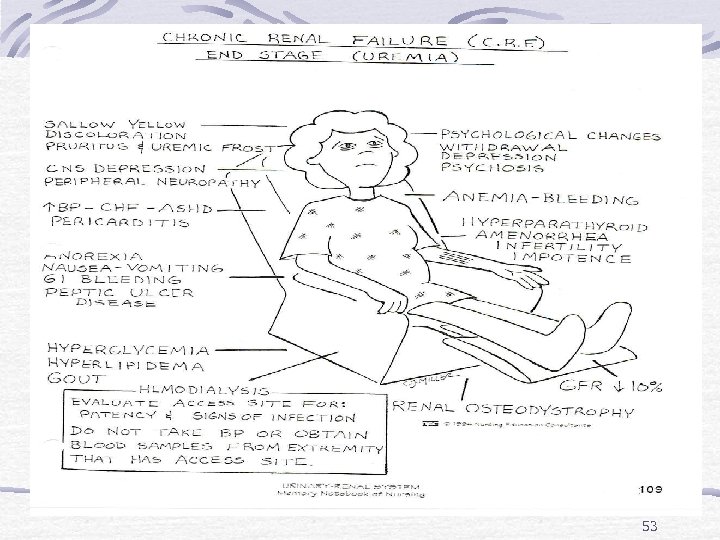 CHRONIC RENAL FAILURE (C.R.F.)
END STAGE (UREMIA)
SALLOW YELLOW
DISCOLORATION
PRURITUS & UREMIC FROST
CNS DEPRESSION
PERIPHERAL NEUROPATHY
↑BP - CHF - ASHD
PERICARDITIS
ANOREXIA
NAUSEA - VOMITING
GI BLEEDING
PEPTIC ULCER
DISEASE
HYPERGLYCEMIA
HYPERLIPIDEMA
GOUT
PSYCHOLOGICAL CHANGES
WITHDRAWAL
DEPRESSION
PSYCHOSIS
ANEMIA - BLEEDING
HYPERPARATHYROID
AMENORRHEA
INFERTILITY
IMPOTENCE
GFR ↓ 10%
RENAL OSTEODYSTROPHY
CJMILLER
© 1994 Nursing Education Consultants
HEMODIALYSIS
EVALUATE ACCESS SITE FOR:
PATENCY & SIGNS OF INFECTION
DO NOT TAKE BP OR OBTAIN
BLOOD SAMPLES FROM EXTREMITY
THAT HAS ACCESS SITE.
URINARY-RENAL SYSTEM
Memory Notebook of Nursing
109
53